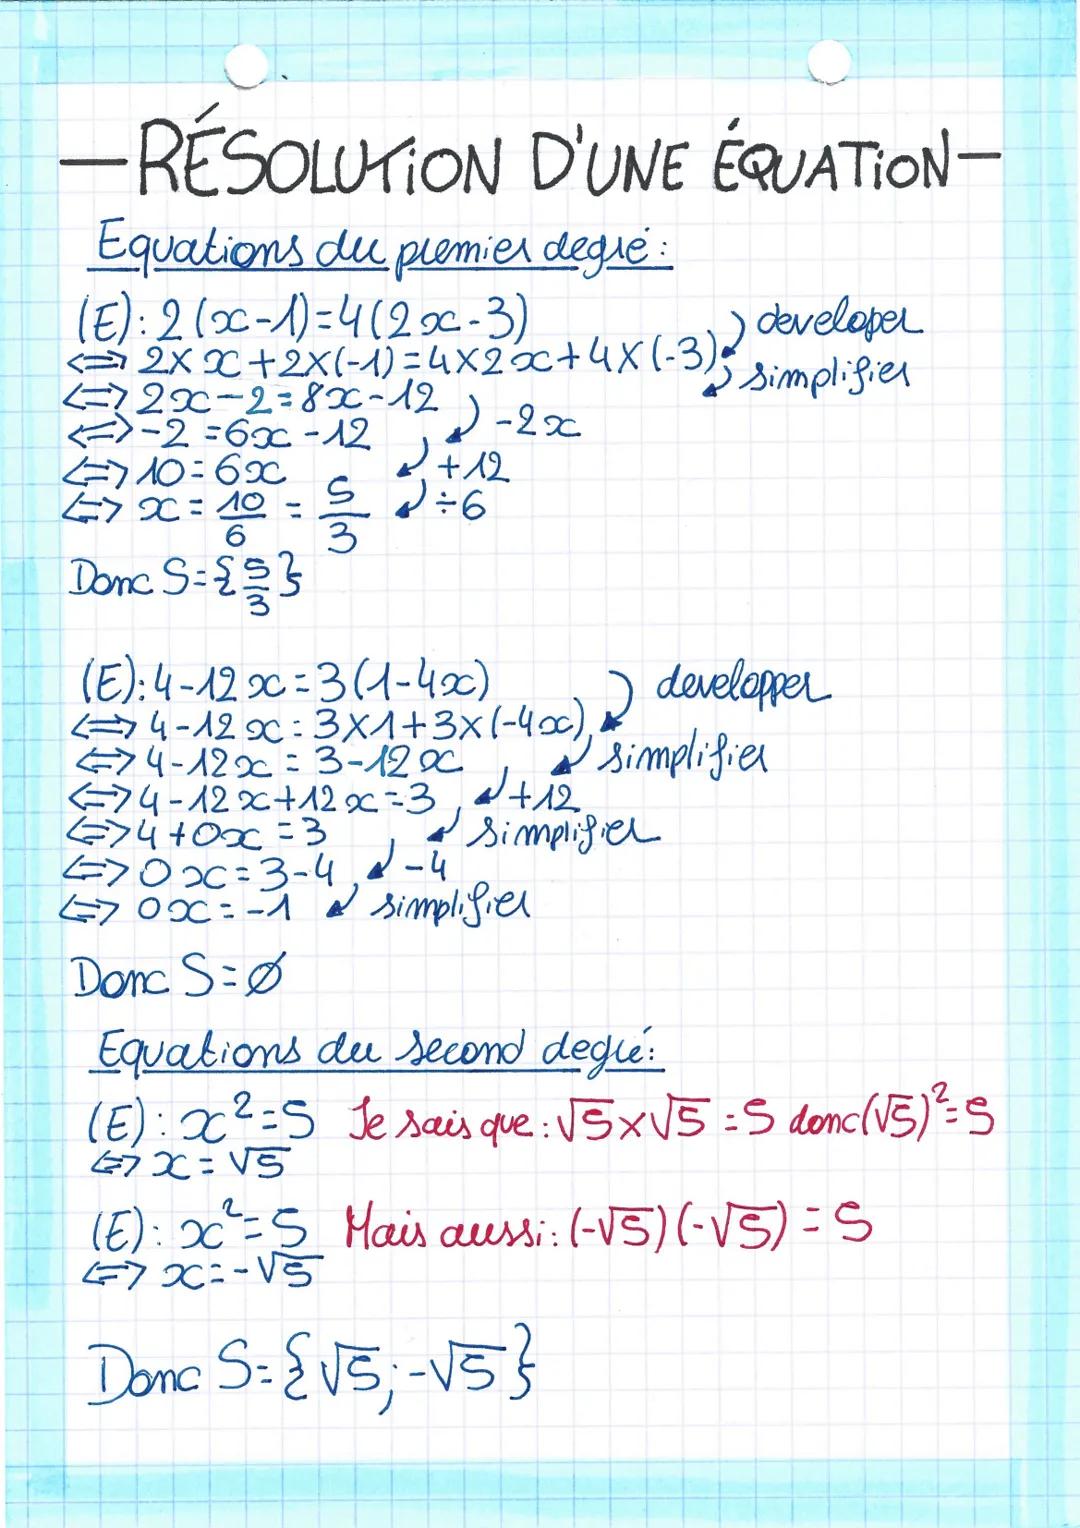 —RÉSOLUTION D'UNE ÉQUATION—
Equations du premier degré:
(E): 2(x-1)=4(2x-3)
⟺ 2×x+2×(-1)=4×2x+4×(-3) developer
⟺ 2x-2=8x-12 simplifier
⟺ -2=6x-12 -2x
⟺ 10=6x +12
⟺ x=10/6=5/3 ÷6
Donc S={5/3}
(E):4-12x=3(1-4x)
⟺ 4-12x=3×1+3×(-4x) developper
⟺ 4-12x=3-12x simplifier
⟺ 4-12x+12x=3 +12
⟺ 4+0x=3 simplifier
⟺ 0x=3-4 -4
⟺ 0x=-1 simplifier
Donc S=∅
Equations du second degré:
(E): x²=5 Je sais que: √5×√5=5 donc(√5)²=5
⟺ x=√5
(E): x²=5 Mais aussi: (-√5)(-√5)=5
⟺ x=-√5
Donc S={√5;-√5}